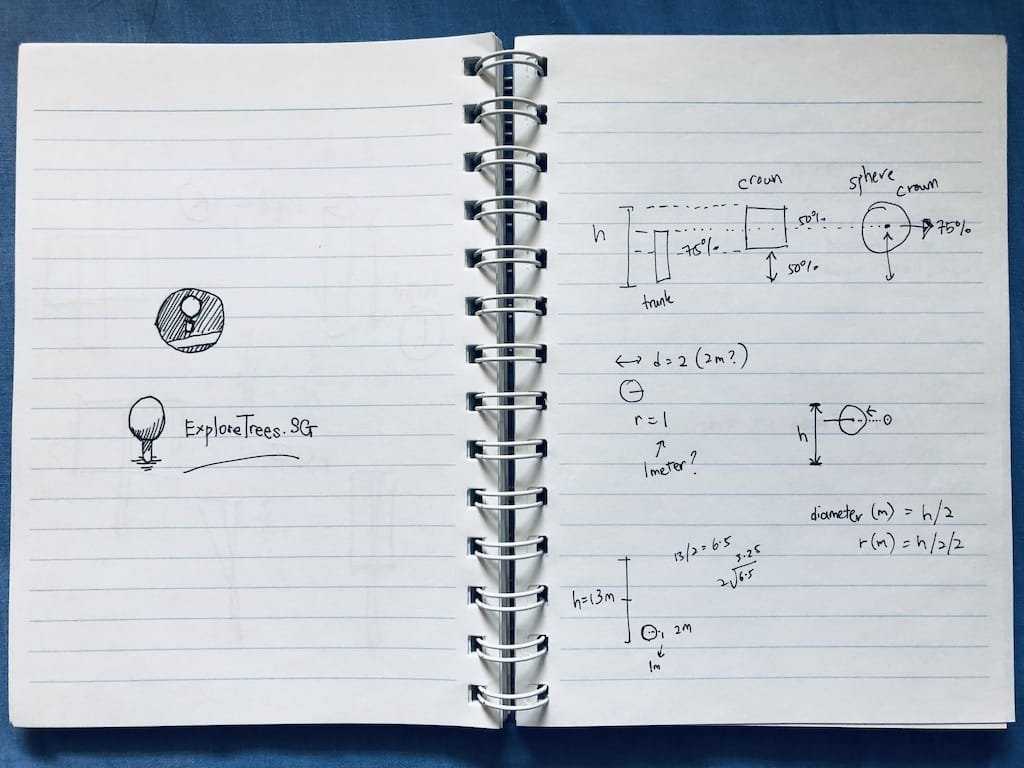 ExploreTrees.SG
crown
sphere
crown
h
75%
50%
50%
75%
trunk
d = 2 (2m?)
r = 1
1meter?
h
diameter (m) = h/2
r(m) = h/2/2
13/2 = 6.5
3.25
2√6.5
h=13m
2m
1m